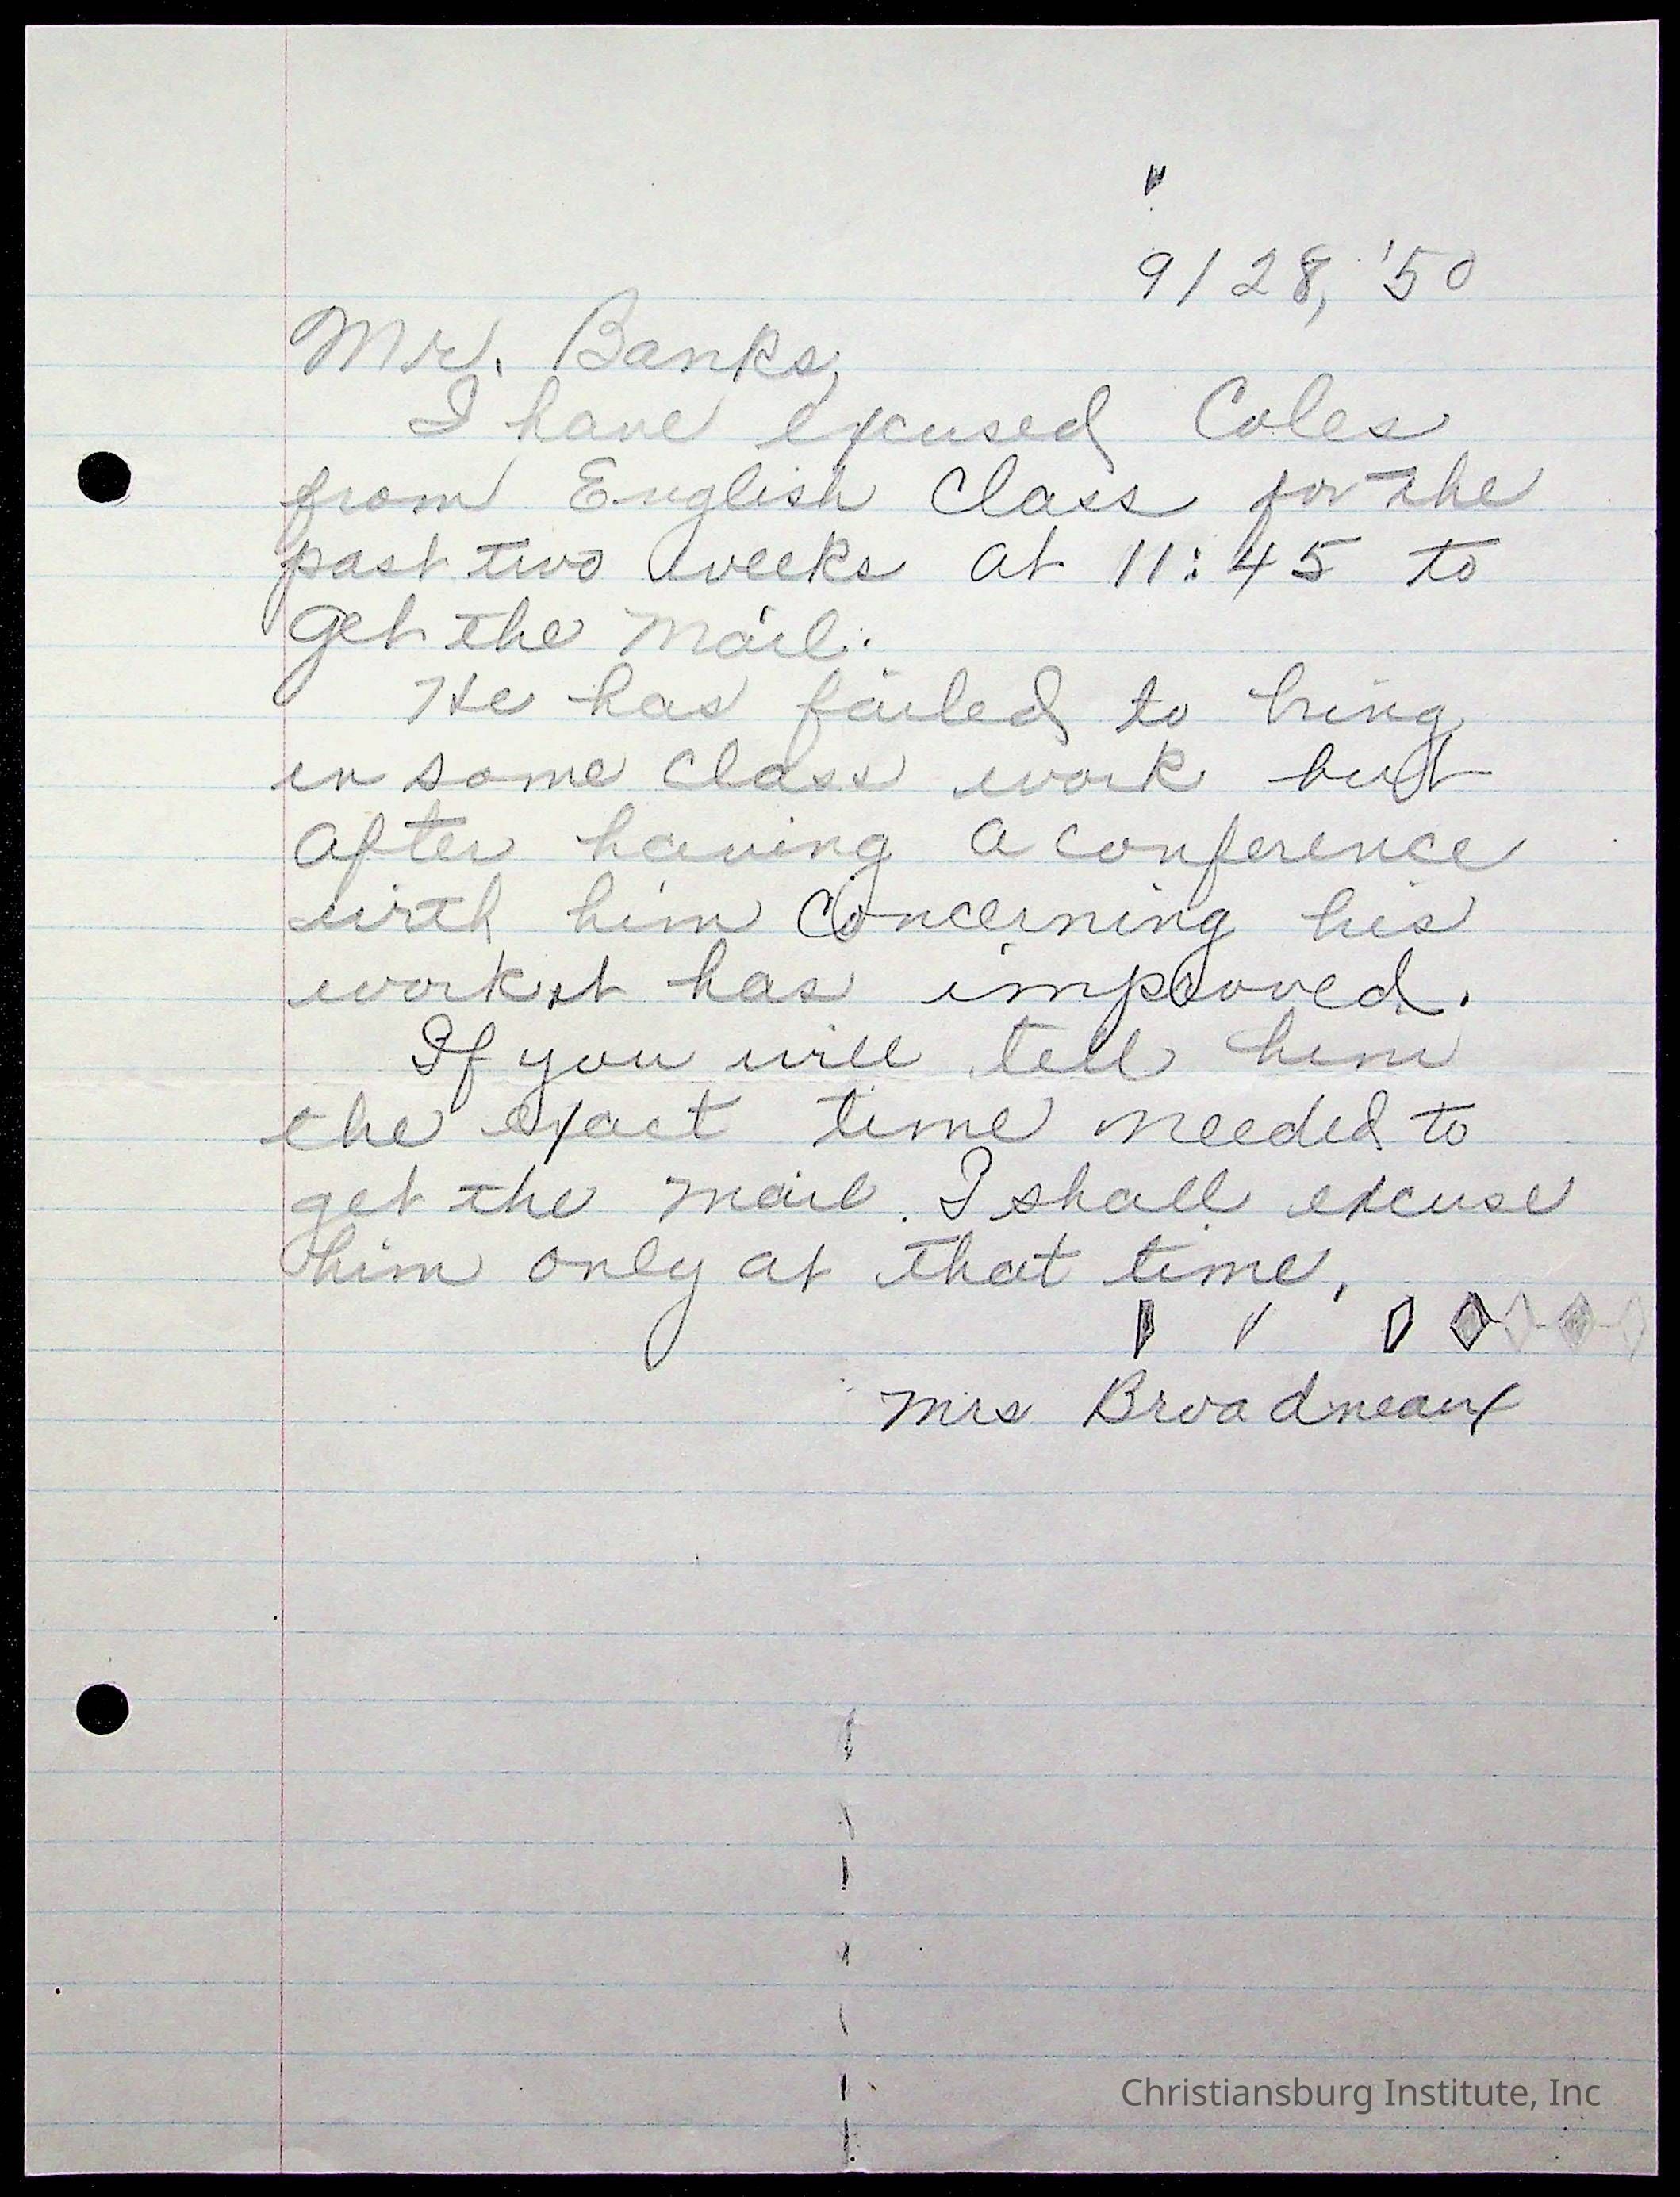 9/28, '50
Mr. Banks,
I have excused Coles
from English Class for the
past two weeks at 11:45 to
get the mail.
He has failed to bring
in some class work but
after having a conference
with him concerning his
work it has improved.
If you will tell him
the exact time needed to
get the mail. I shall excuse
him only at that time.
Mrs Broadneaux
Christiansburg Institute, Inc